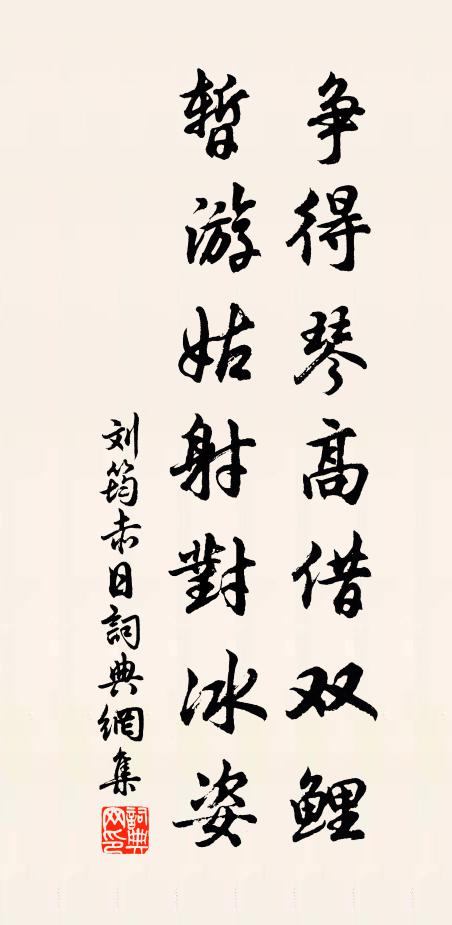 争得琴高借双鲤
暂游姑射對冰姿
刘筠赤日詞典網集
詞典網印